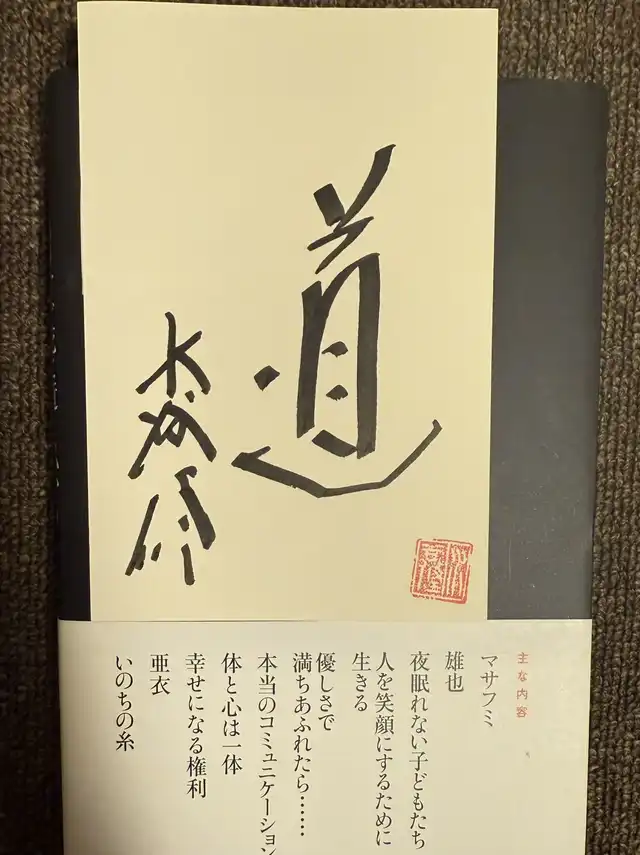 道
主な内容
マサフミ
雄也
夜眠れない子どもたち
人を笑顔にするために
生きる
優しさで
満ちあふれたら……
本当のコミュニケーション
体と心は一体
幸せになる権利
亜衣
いのちの糸